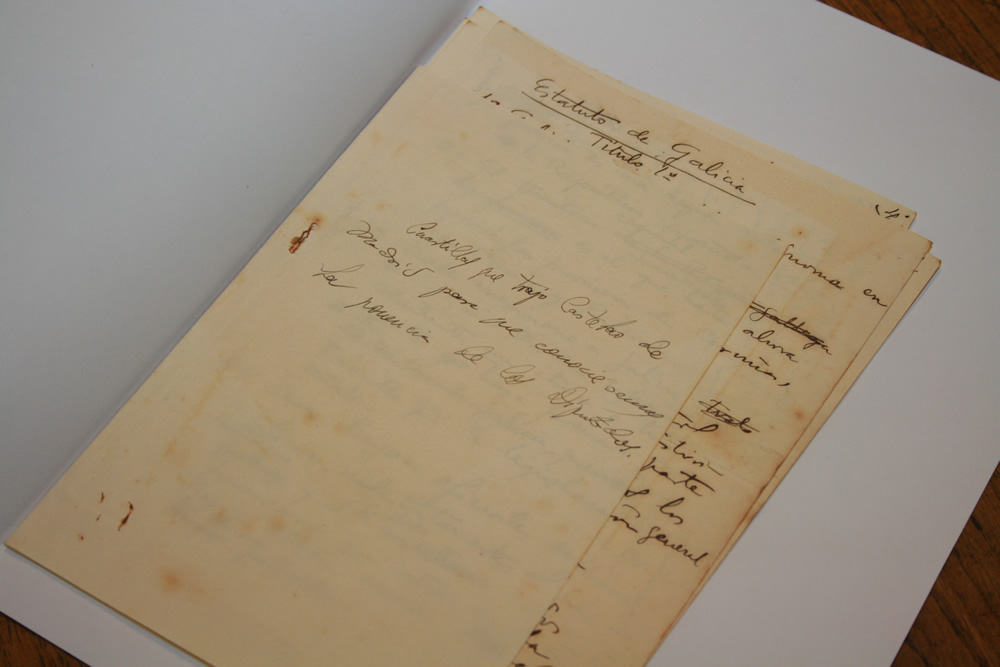 Estatuto de Galicia
Título 1º
Cuartillas que trajo Castelao de
Madrid para que conociésemos
la ponencia de los Diputados.
en
ahora
trato
parte
los
general
la